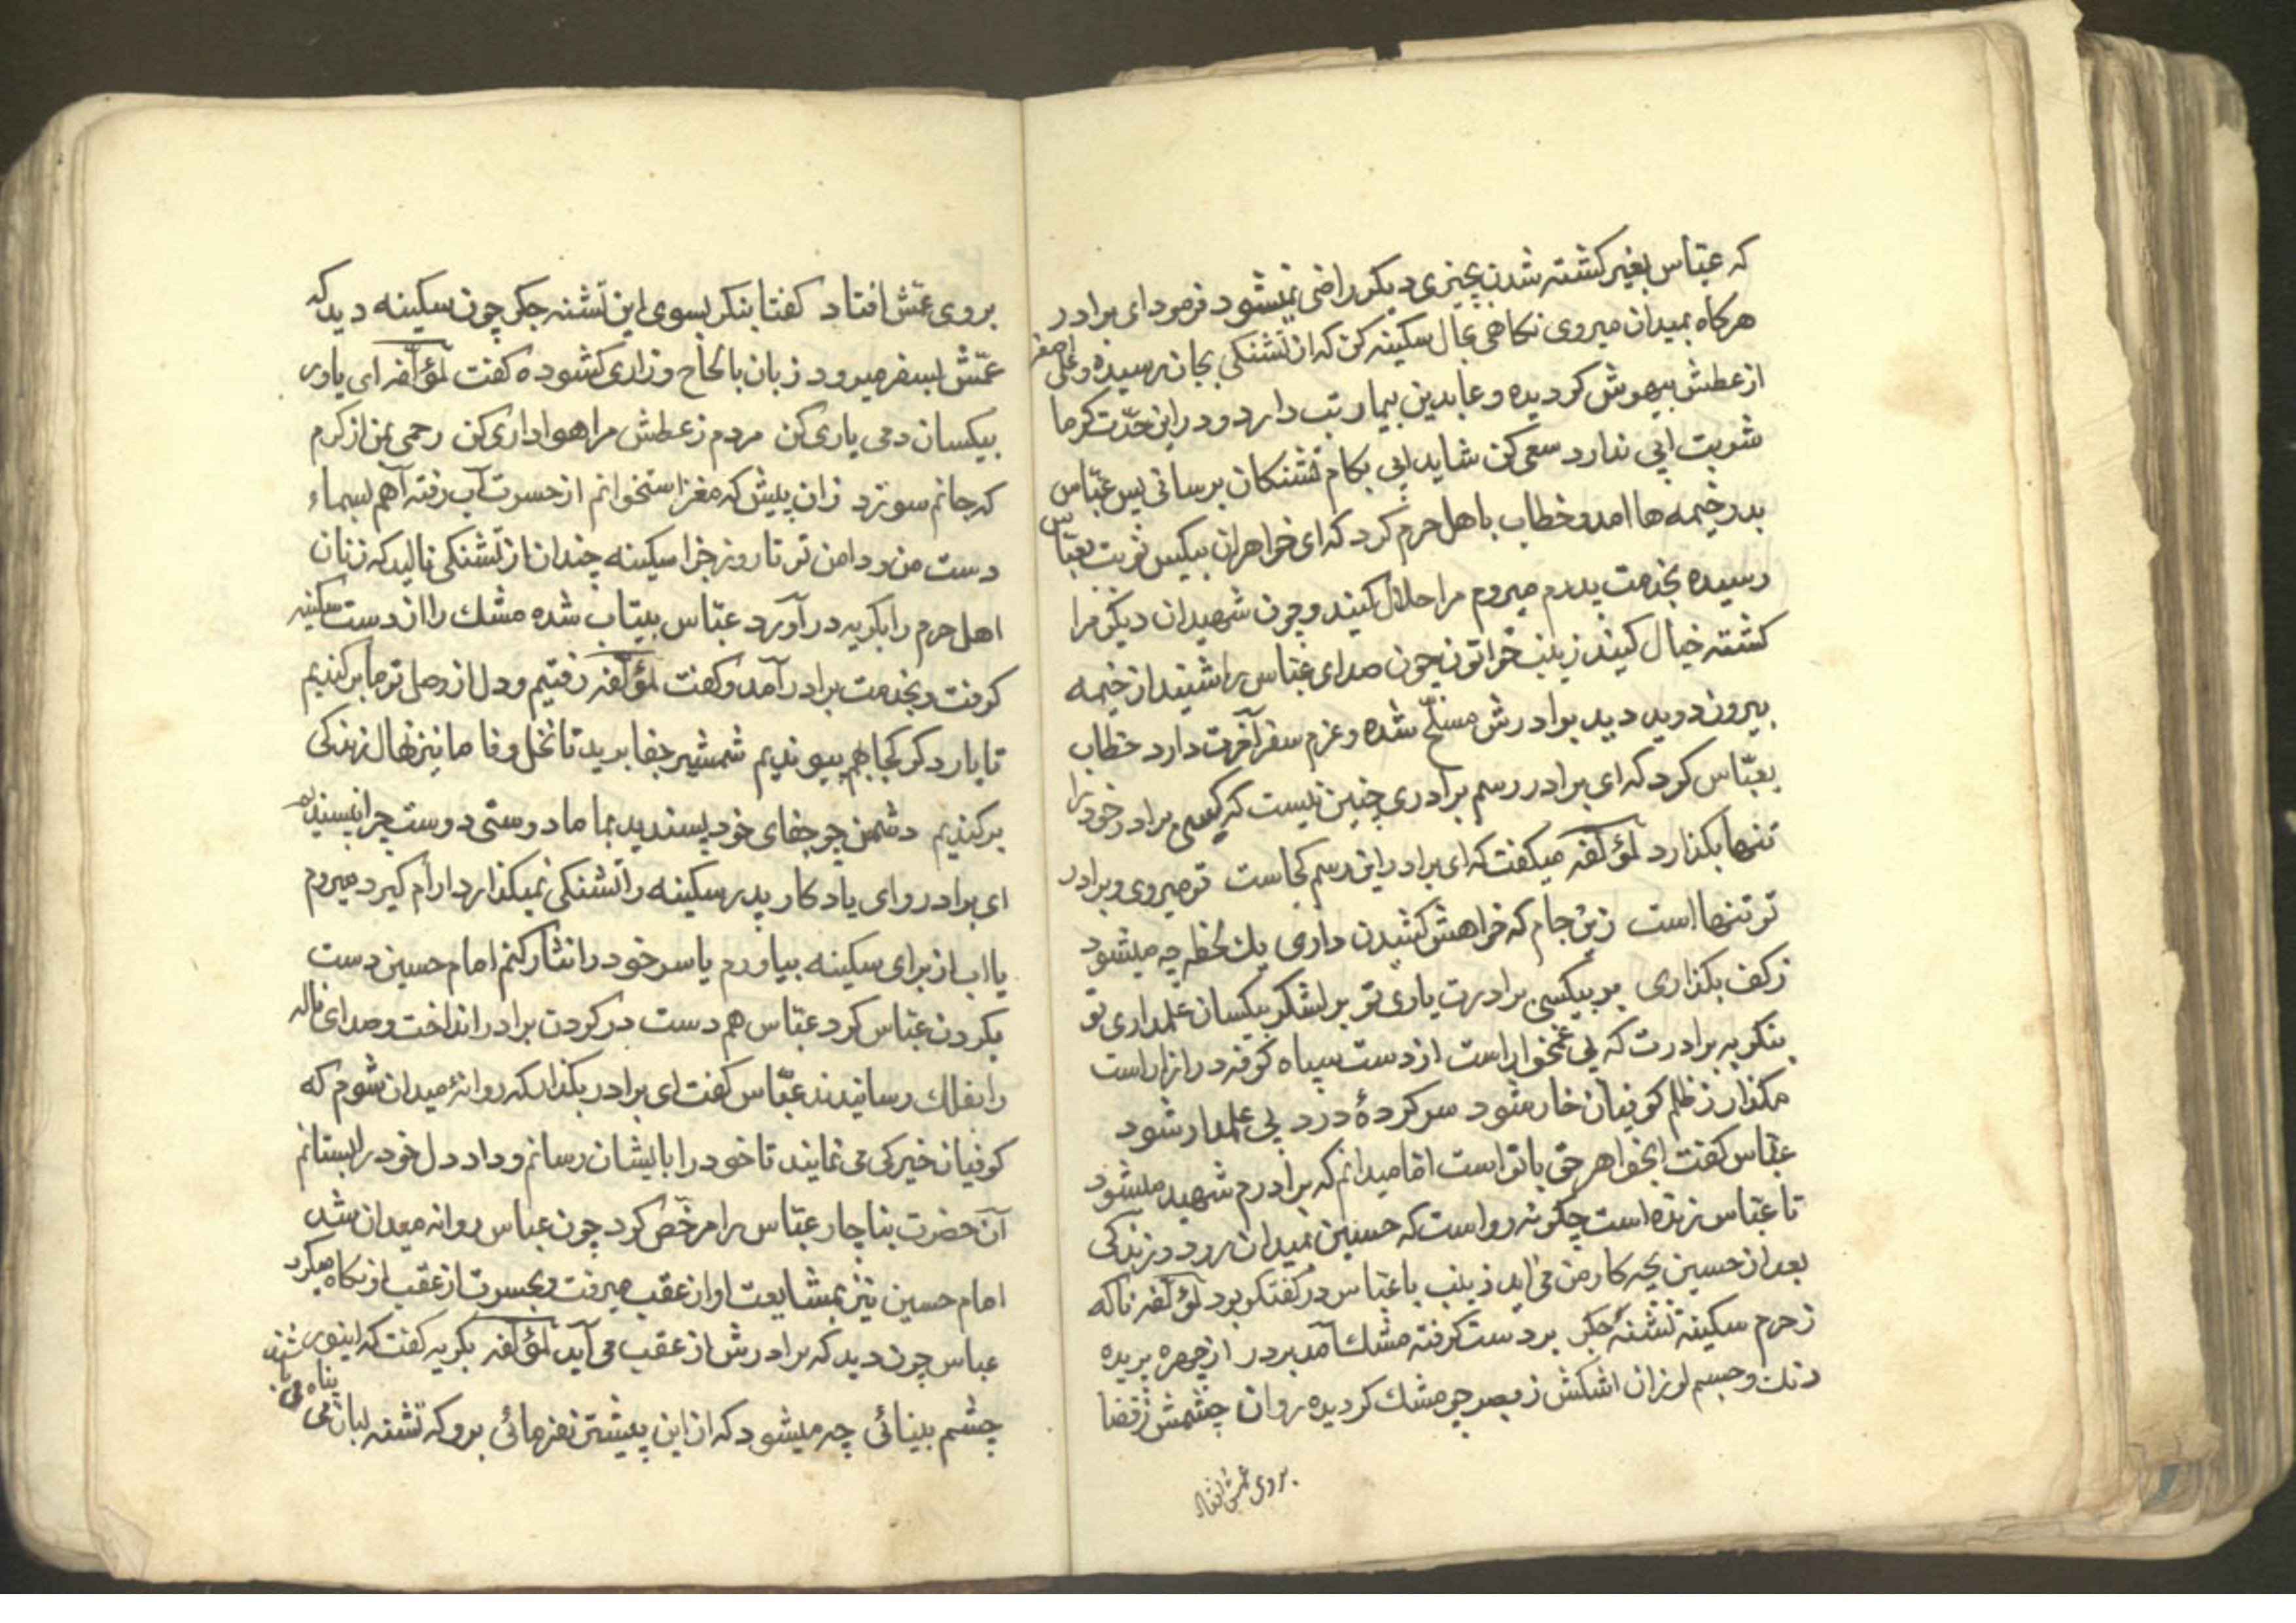 که عبّاس بغیر کشته شدن بچیزی دیکر راضی نمیشود فرمود ای برادر
هرکاه بمیدان میروی نکاهی بحال سکینه کن که از تشنکی بجان رسیده و علی اصغر
از عطش بیهوش کردیده و عابدین بیمار تب دارد و در این حدّت کرما
شربت ابی ندارد سعی کن شاید ابی بکام تشنکان برسانی پس عبّاس
بدر خیمه ها امد و خطاب باهل حرم کرد که ای خواهران بیکس نوبت بعبّاس
رسیده بخدمت پدرم میروم مرا حلال کنید و چون شهیدان دیکر مرا
کشته خیال کنید زینب خواتون چون صدای عبّاس را شنید از خیمه
بیرون دوید دید برادرش مسلّح شده و عزم سفر آخرت دارد خطاب
بعبّاس کرد که ای برادر رسم برادری چنین نیست که کسی برادر خود را
تنها بکذارد لمؤلّفه میکفت که ای برادر این رسم کجاست تو میروی و برادر
تو تنها است زین جام که خواهش کشیدن داری یك لحظه چه میشود
ز کف بکذاری بر بیکسی برادرت یاری تو بر لشکر بیکسان علمداری تو
بنکر به برادرت که بی غمخوار است از دست سپاه کوفه در ازار است
مکذار ز ظلم کوفیان خار شود سرکردهٔ درد بی علمدار شود
عبّاس کفت ایخواهر حق با تو است امّا میدانم که برادرم شهید میشود
تا عبّاس زنده است چکونه رواست که حسین بمیدان رود و زندکی
بعد از حسین بچه کار من می آید زینب با عبّاس در کفتکو بود لمؤلّفه ناکه
ز حرم سکینهٔ تشنه جکر بر دست کرفته مشك آمد بر در از چهره پریده
رنك و جسم لرزان اشکش ز بصر چو مشك کردیده روان چشمش ز قضا
بروی عمّش افتاد
بروی عمّش افتاد کفتا بنکر بسوی این تشنه جکر چون سکینه دید که
عمّش بسفر میرود زبان بالحاح و زاری کشوده کفت لمؤلّفه ای یاور
بیکسان دمی یاری کن مردم ز عطش مرا هواداری کن رحمی بمن از کرم
که جانم سوزد زان پیش که مغز استخوانم از حسرت آب رفته آهم بسماء
دست من و دامن تو تا روز جزا سکینه چندان از تشنکی نالید که زنان
اهل حرم را بکریه در آورد عبّاس بیتاب شده مشك را از دست سکینه
کرفت و بخدمت برادر آمد و کفت لمؤلّفه رفتیم و دل از وصل تو ما برکندیم
تا بار دکر کجا بهم پیوندیم شمشیر جفا برید تا نخل وفا ما نیز نهال زندکی
برکندیم دشمن چو جفای خود پسندید بما ما دوستی دوست چرا نپسندیم
ای برادر و ای یادکار پدر سکینه را تشنکی نمیکذارد ارام کیرد میروم
یا اب از برای سکینه بیاورم یا سر خود را نثار کنم امام حسین دست
بکردن عبّاس کرد عبّاس هم دست در کردن برادر انداخت و صدای ناله
را بفلك رسانیدند عبّاس کفت ای برادر بکذار که روانهٔ میدان شوم که
کوفیان خیرکی می نمایند تا خود را بایشان رسانم و داد دل خود را بستانم
آن حضرت بناچار عبّاس را مرخّص کرد چون عباس روانه میدان شد
امام حسین نیز بمشایعت او از عقب میرفت و بحسرت از عقب او نکاه میکرد
عباس چون دید که برادرش از عقب می آید لمؤلّفه بکریه کفت که اینور
چشم بینائی چه میشود که از این پیشتر نفرمائی برو که تشنه لبان